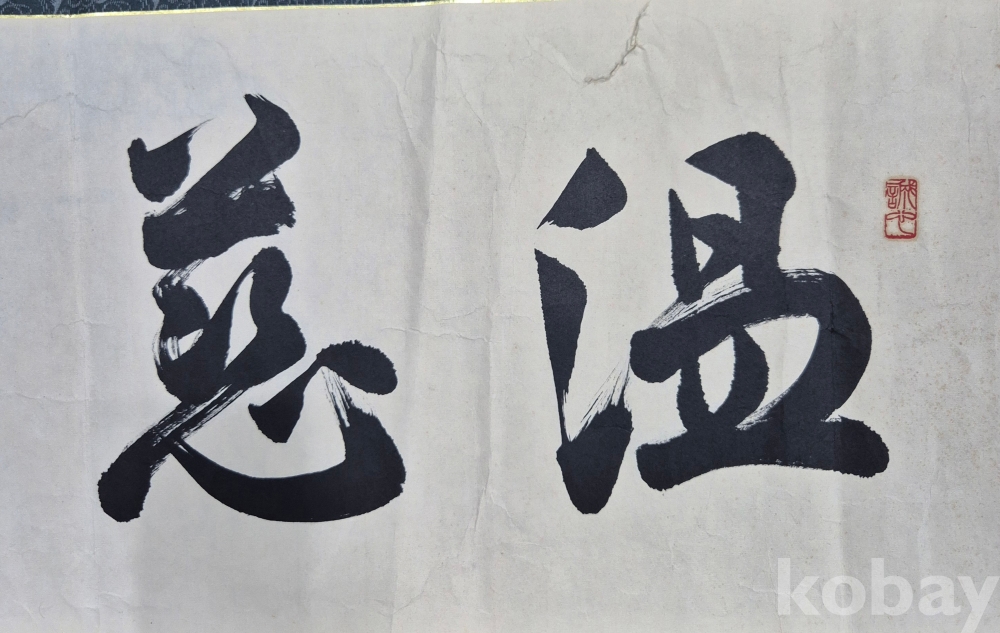 温慈
kobay